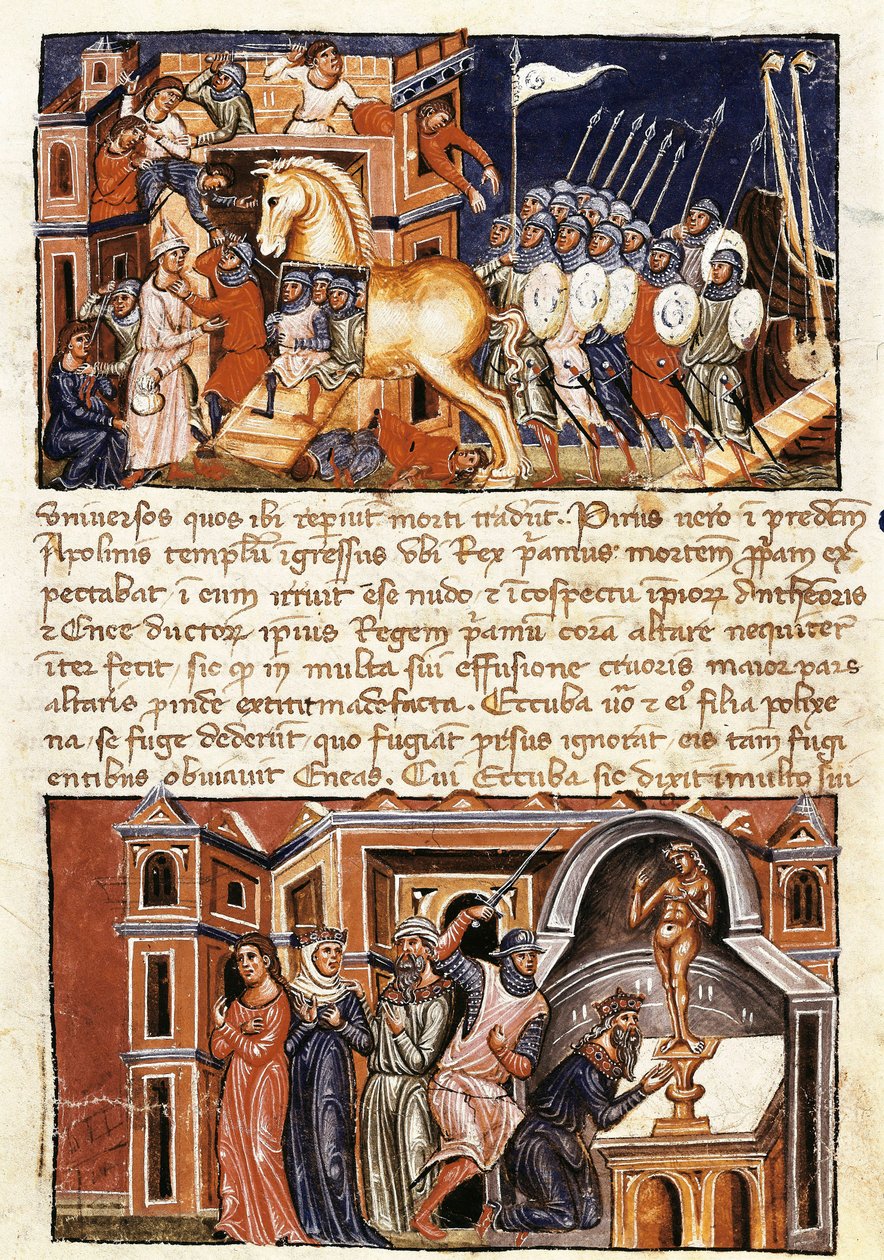 Universos quos ibi reperiūt morti tradūt. Pirus uero ī predcm̄
Apolinis templū īgressus vbi Rex p̄amus mortem p̄pam ex
pectabat ī eum irruit ēse nudo ⁊ ī cōspectu ip̄ior Antheōris
⁊ Enee ductor ip̄ius Regem p̄amū corā altare nequiter
īterfecit sic ꝙ in multa sui effusione cruoris maior pars
altaris proinde extitit madefacta. Eccuba ūo ⁊ eiꝰ filia polixe
na se fuge dederūt quo fugiāt prsus ignorāt eis tam̄ fugi
entibus obuiauit Eneas. Cui Eccuba sic dixit ī multo sui